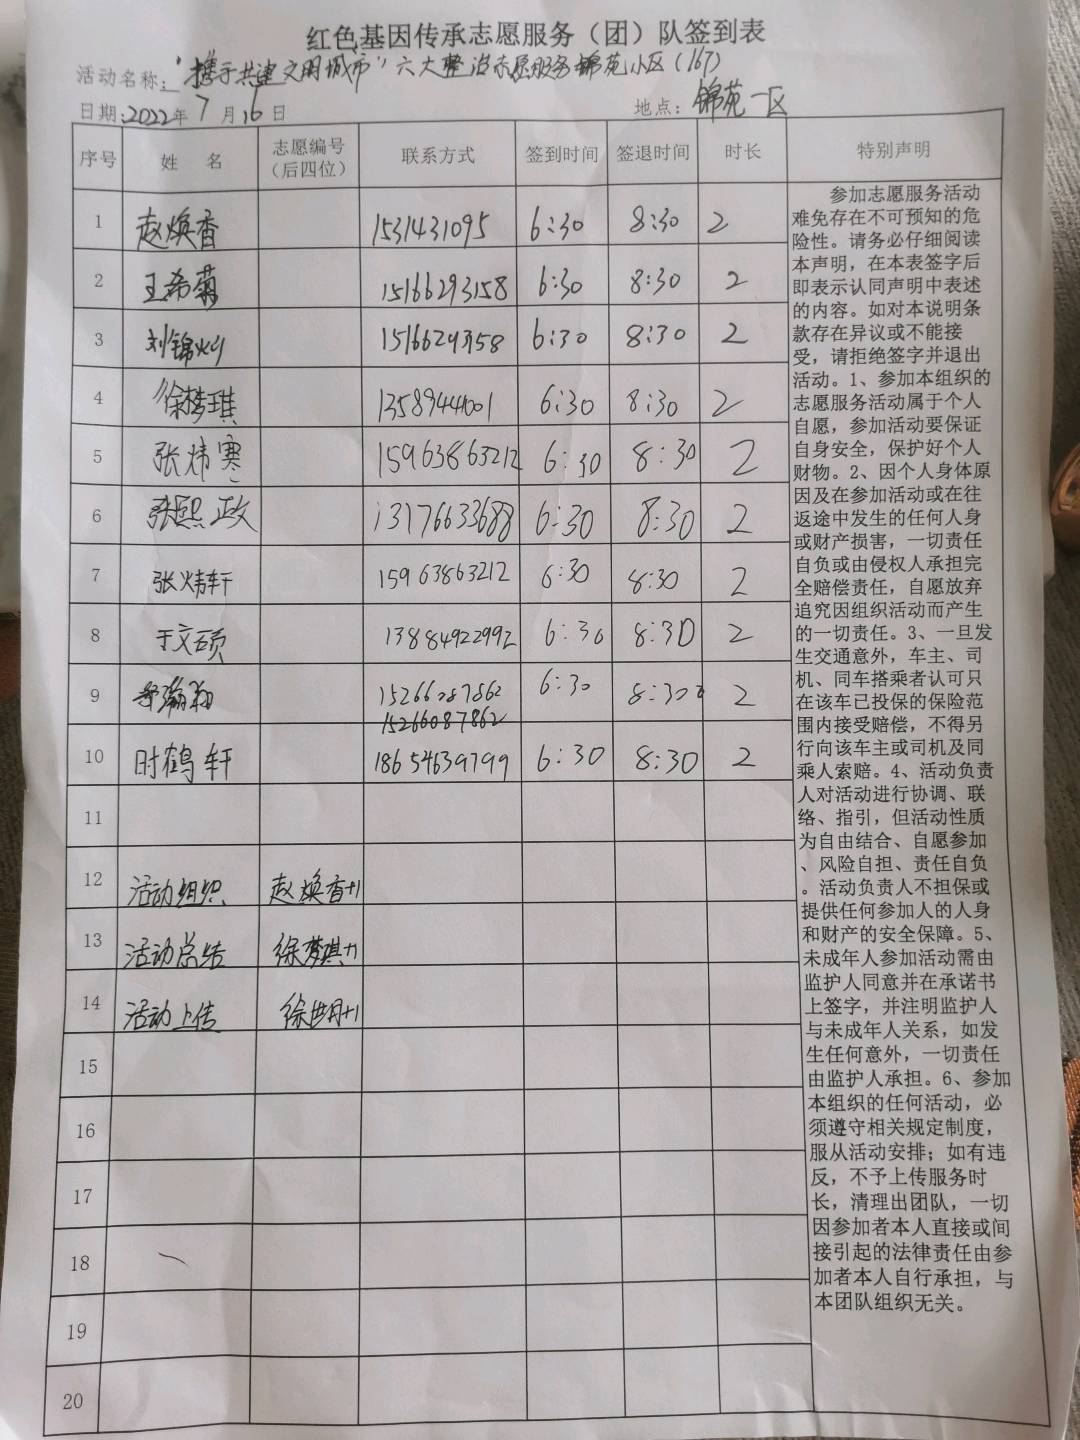 红色基因传承志愿服务（团）队签到表
活动名称："携手共建文明城市"六大整治志愿服务锦苑小区(167)
日期:2022年7月16日 地点：锦苑一区
序号 姓 名 志愿编号（后四位） 联系方式 签到时间 签退时间 时长 特别声明
1 赵焕香 1531431095 6:30 8:30 2
2 王希菊 15166293158 6:30 8:30 2
3 刘锦灿 6:30 8:30 2
4 徐梦琪 13589444001 6:30 8:30 2
5 张炜寒 15963863212 6:30 8:30 2
6 张熙政 13176633688 6:30 8:30 2
7 张炜轩 15963863212 6:30 8:30 2
8 于文硕 13884922992 6:30 8:30 2
9 15266087862 6:30 8:30 2
15266087862
10 时鹤轩 18654639799 6:30 8:30 2
11
12 活动组织 赵焕香+1
13 活动总结 徐梦琪+1
14 活动上传
15
16
17
18
19
20
参加志愿服务活动
难免存在不可预知的危
险性。请务必仔细阅读
本声明，在本表签字后
即表示认同声明中表述
的内容。如对本说明条
款存在异议或不能接
受，请拒绝签字并退出
活动。1、参加本组织的
志愿服务活动属于个人
自愿，参加活动要保证
自身安全，保护好个人
财物。2、因个人身体原
因及在参加活动或在往
返途中发生的任何人身
或财产损害，一切责任
自负或由侵权人承担完
全赔偿责任，自愿放弃
追究因组织活动而产生
的一切责任。3、一旦发
生交通意外，车主、司
机、同车搭乘者认可只
在该车已投保的保险范
围内接受赔偿，不得另
行向该车主或司机及同
乘人索赔。4、活动负责
人对活动进行协调、联
络、指引，但活动性质
为自由结合、自愿参加
、风险自担、责任自负
。活动负责人不担保或
提供任何参加人的人身
和财产的安全保障。5、
未成年人参加活动需由
监护人同意并在承诺书
上签字，并注明监护人
与未成年人关系，如发
生任何意外，一切责任
由监护人承担。6、参加
本组织的任何活动，必
须遵守相关规定制度，
服从活动安排；如有违
反，不予上传服务时
长，清理出团队，一切
因参加者本人直接或间
接引起的法律责任由参
加者本人自行承担，与
本团队组织无关。